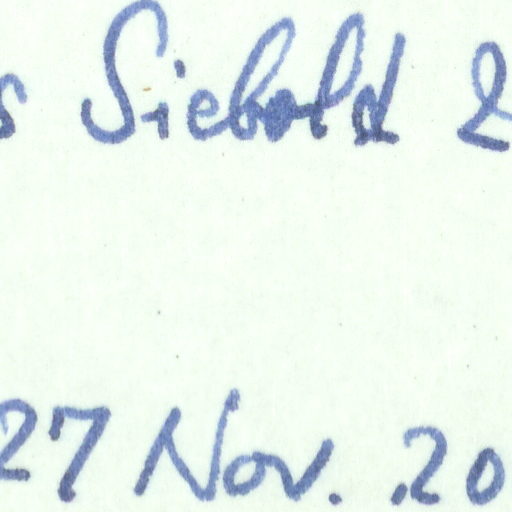 s Siebold 2
27 Nov. 20